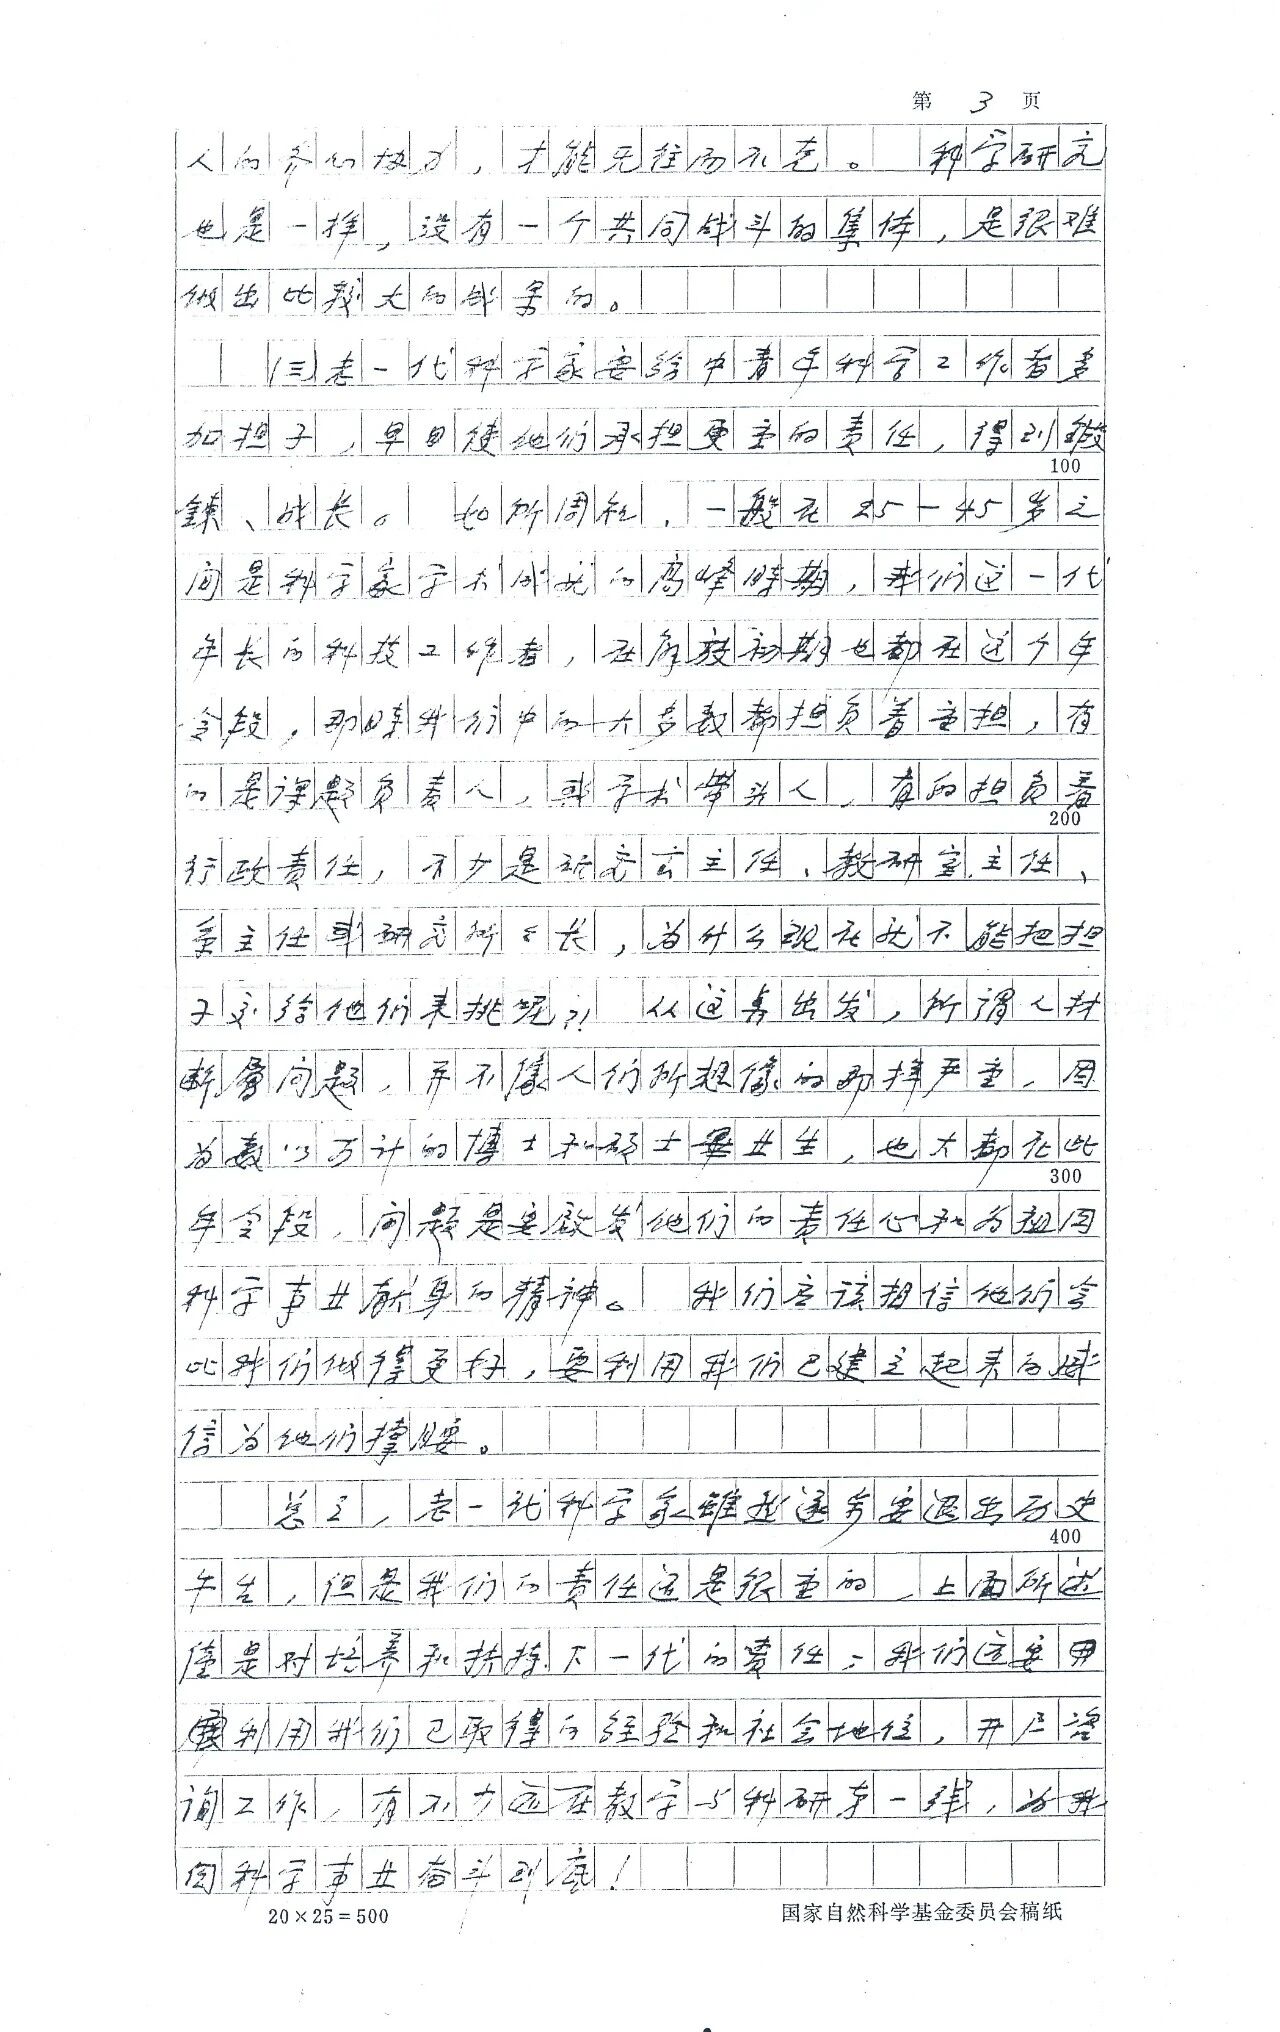 第 3 页
人的齐心协力，才能无往而不克。科学研究
也是一样，没有一个共同战斗的集体，是很难
做出比较大的成果的。
(三)老一代科学家要给中青年科学工作者多
加担子，早日使他们承担更重的责任，得到锻
100
鍊、成长。如所周知，一般在25—45岁之
间是科学家学术成就的高峰時期，我们这一代
年长的科技工作者，在解放初期也都在这个年
令段，那時我们中的大多数都担负着重担，有
的是课题负责人，或学术带头人，有的担负着
200
行政责任，不少是研究室主任、教研室主任、
系主任或研究所所长，为什么现在就不能把担
子交给他们来挑呢?! 从这点出发，所谓人材
断层问题，并不像人们所想像的那样严重，因
为数以万计的博士和硕士毕业生，也大都在此
300
年令段，问题是要启发他们的责任心和为祖国
科学事业献身的精神。我们应该相信他们会
比我们做得更好，要利用我们已建立起来的威
信为他们撑腰。
总之，老一代科学家虽然逐步要退出历史
400
午台，但是我们的责任还是很重的，上面所述
僅是对培养和扶持下一代的责任；我们还要
利用我们已取得的经验和社会地位，开户咨
询工作，有不少还在教学与科研第一线，为我
国科学事业奋斗到底！
20×25=500
国家自然科学基金委员会稿纸